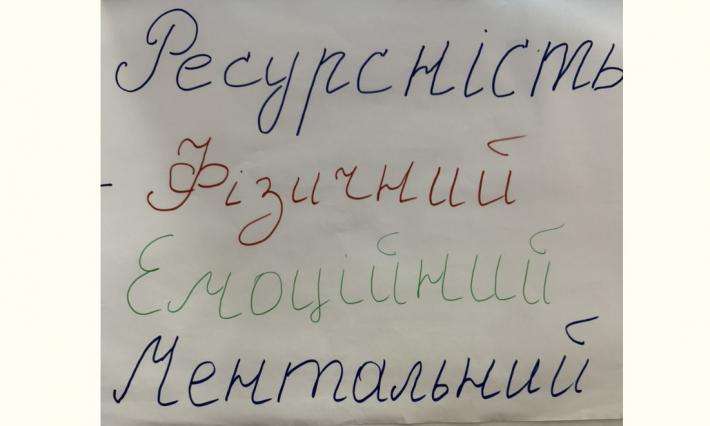 Ресурсність
- Фізичний
Емоційний
Ментальний